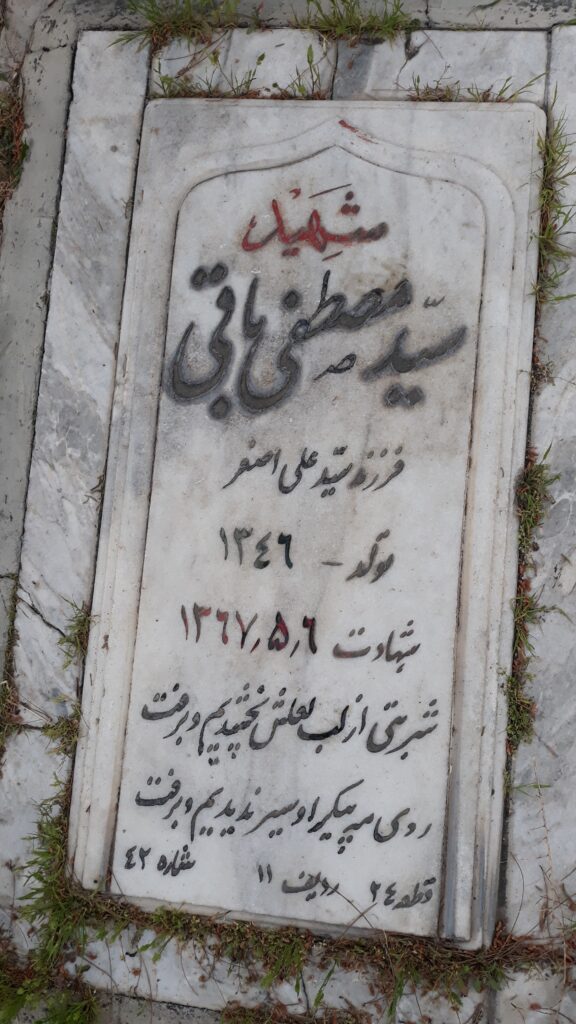 شهید
سیّد مصطفی باقی
فرزند سیّد علی اصغر
تولد - ۱۳۴۶
شهادت ۱۳۶۷٫۵٫۶
شربتی از لب لعلش نچشیدیم و برفت
روی مه پیکر او سیر ندیدیم و برفت
قطعه ۲۴ ردیف ۱۱ شماره ۴۲